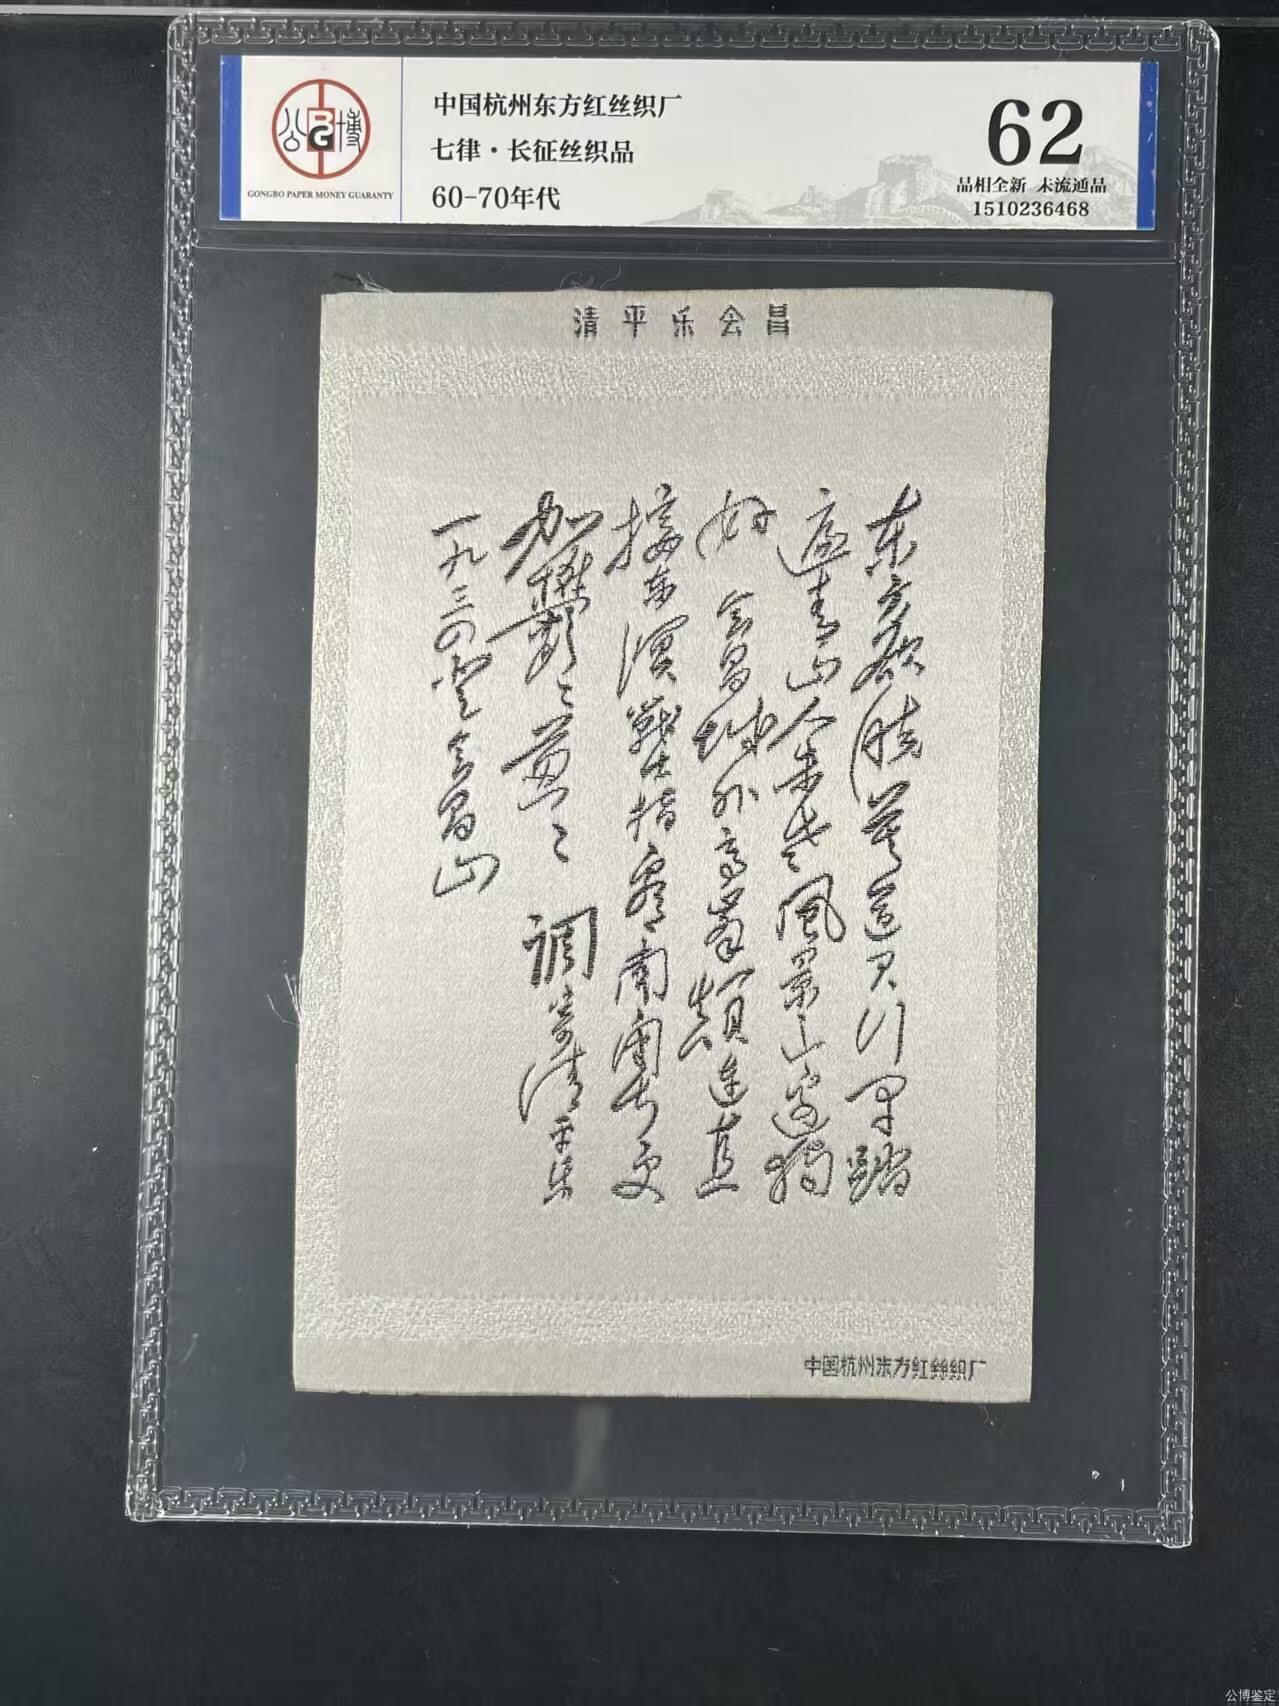 公博
BG
GONGBO PAPER MONEY GUARANTY
中国杭州东方红丝织厂
七律·长征丝织品
60-70年代
62
品相全新 未流通品
1510236468
清平乐会昌
东方欲晓莫道君行早踏
遍青山人未老風景这边独
好 会昌城外高峰顛连直
接东溟戰士指看南粤更
加欝〻葱〻 调寄清平乐
一九三四登会昌山
中国杭州东方红丝织厂
公博鉴定